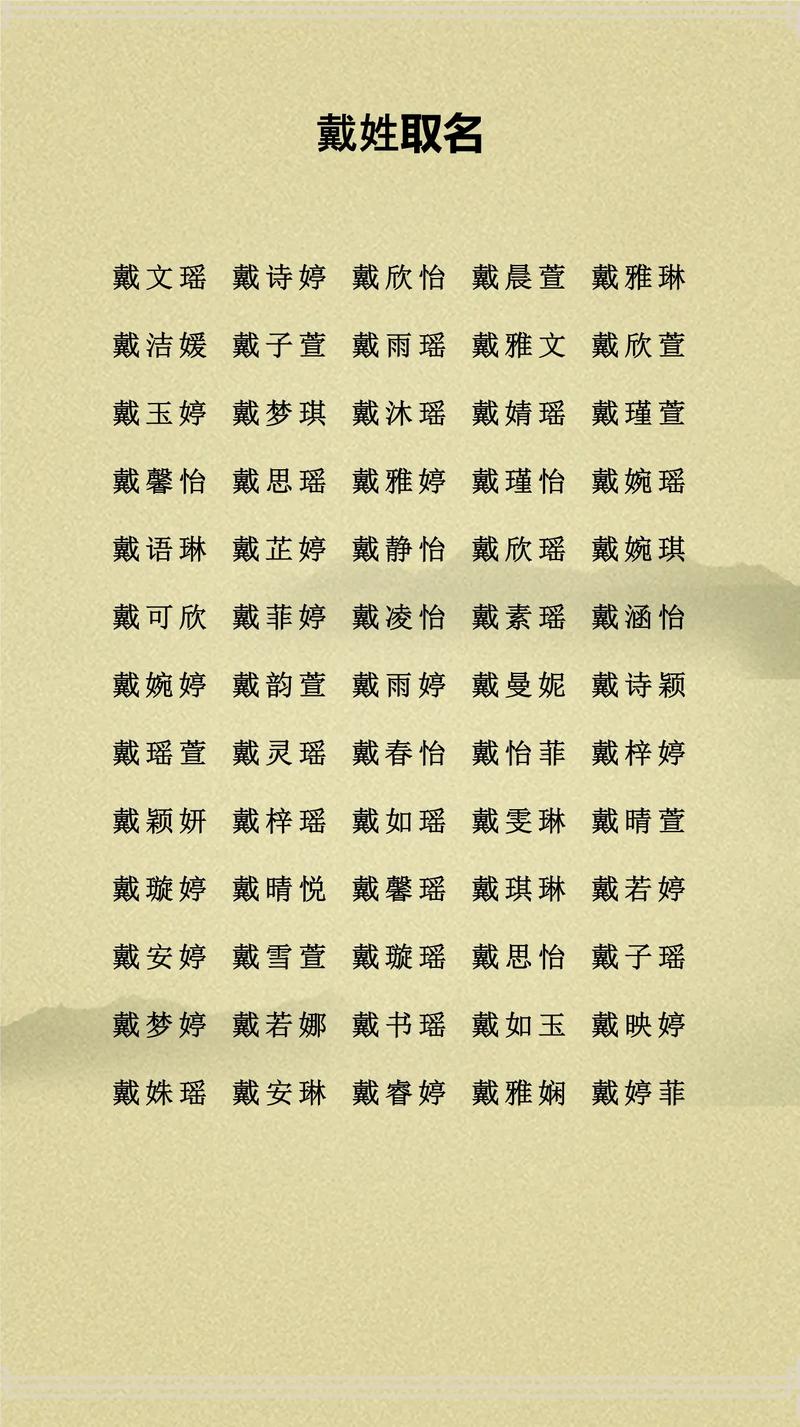 戴姓取名
戴文瑶 戴诗婷 戴欣怡 戴晨萱 戴雅琳
戴洁媛 戴子萱 戴雨瑶 戴雅文 戴欣萱
戴玉婷 戴梦琪 戴沐瑶 戴婧瑶 戴瑾萱
戴馨怡 戴思瑶 戴雅婷 戴瑾怡 戴婉瑶
戴语琳 戴芷婷 戴静怡 戴欣瑶 戴婉琪
戴可欣 戴菲婷 戴凌怡 戴素瑶 戴涵怡
戴婉婷 戴韵萱 戴雨婷 戴曼妮 戴诗颖
戴瑶萱 戴灵瑶 戴春怡 戴怡菲 戴梓婷
戴颖妍 戴梓瑶 戴如瑶 戴雯琳 戴晴萱
戴璇婷 戴晴悦 戴馨瑶 戴琪琳 戴若婷
戴安婷 戴雪萱 戴璇瑶 戴思怡 戴子瑶
戴梦婷 戴若娜 戴书瑶 戴如玉 戴映婷
戴姝瑶 戴安琳 戴睿婷 戴雅娴 戴婷菲